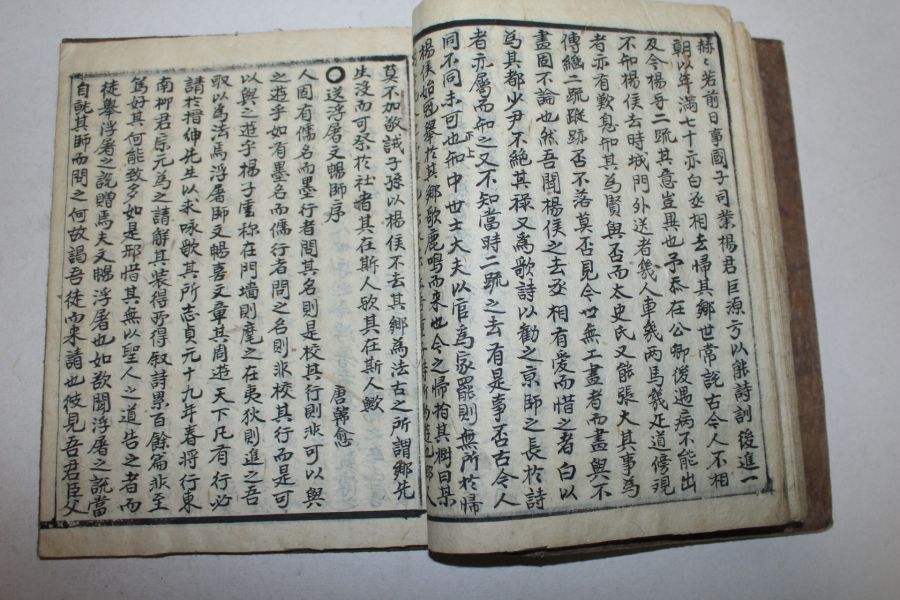 赫〻若前日事國子司業楊君巨源方以能詩訓後進一
朝以年滿七十亦白丞相去歸其鄉世常說古今人不相
及今楊與二疏其意豈異也予忝在公卿後遇病不能出
不知楊侯去時城門外送者幾人車幾兩馬幾疋道傍觀
者亦有歎息知其為賢與否而太史氏又能張大其事為
傳繼二疏蹤跡否不落莫否見今世無工畫者而畫與不
畫固不論也然吾聞楊侯之去丞相有愛而惜之者白以
為其都少尹不絕其祿又為歌詩以勸之京師之長於詩
者亦屬而和之又不知當時二疏之去有是事否古今人
同不同未可也知中世士大夫以官為家罷則無所於歸
楊侯始冠舉於其鄉歌鹿鳴而來也今之歸指其樹曰某
莫不加敬誡子孫以楊侯不去其鄉為法古之所謂鄉先
生沒而可祭於社者其在斯人歟其在斯人歟
○送浮屠文暢師序 唐韓愈
人固有儒名而墨行者問其名則是校其行則非可以與
之遊乎如有墨名而儒行者問之名則非校其行而是可
以與之遊乎楊子雲称在門墻則麾之在夷狄則進之吾
取以為法焉浮屠師文暢喜文章其周遊天下凡有行必
請於搢紳先生以求咏歌其所志貞元十九年春將行東
南柳君宗元為之請解其裝得所得叙詩累百餘篇非至
篤好其何能致多如是邪惜其無以聖人之道告之者而
徒舉浮屠之說贈焉夫文暢浮屠也如欲聞浮屠之說當
自就其師而問之何故謁吾徒而來請也彼見吾君臣父